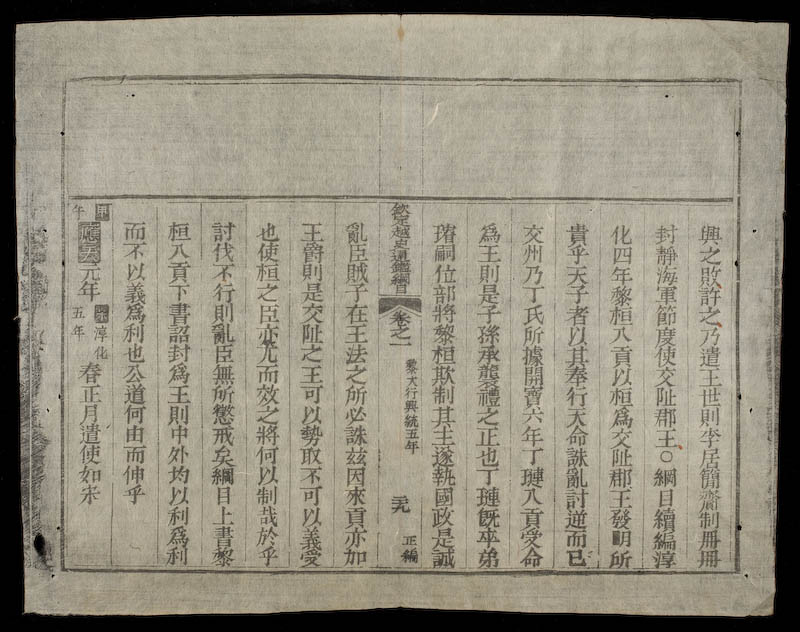 興之敗許之乃遣王世則李居簡齎制冊冊
封靜海軍節度使交阯郡王○綱目續編淳
化四年黎桓入貢以桓爲交阯郡王發明所
貴乎天子者以其奉行天命誅亂討逆而已
交州乃丁氏所據開寶六年丁璉入貢受命
爲王則是子孫承襲禮之正也丁璉旣卒弟
璿嗣位部將黎桓欺制其主遂執國政是誠
欽定越史通鑑綱目
卷之一
黎大行興統五年
二九
正編
亂臣賊子在王法之所必誅茲因來貢亦加
王爵則是交阯之王可以勢取不可以義受
也使桓之臣亦尤而效之將何以制哉於乎
討伐不行則亂臣無所懲戒矣綱目上書黎
桓入貢下書詔封爲王則中外均以利爲利
而不以義爲利也公道何由而伸乎
甲午應天元年
宋淳化五年
春正月遣使如宋